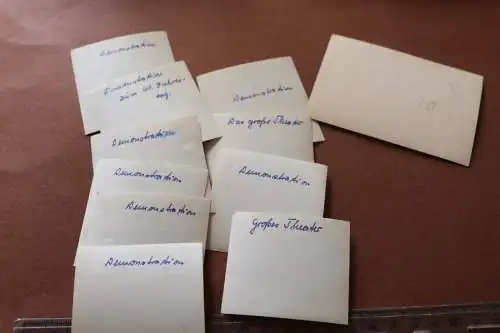 Demonstration
Demonstration
zum
Demonstration
Demonstration
Demonstration
Demonstration
Demonstration
Das große Theater
Demonstration
Großes Theater